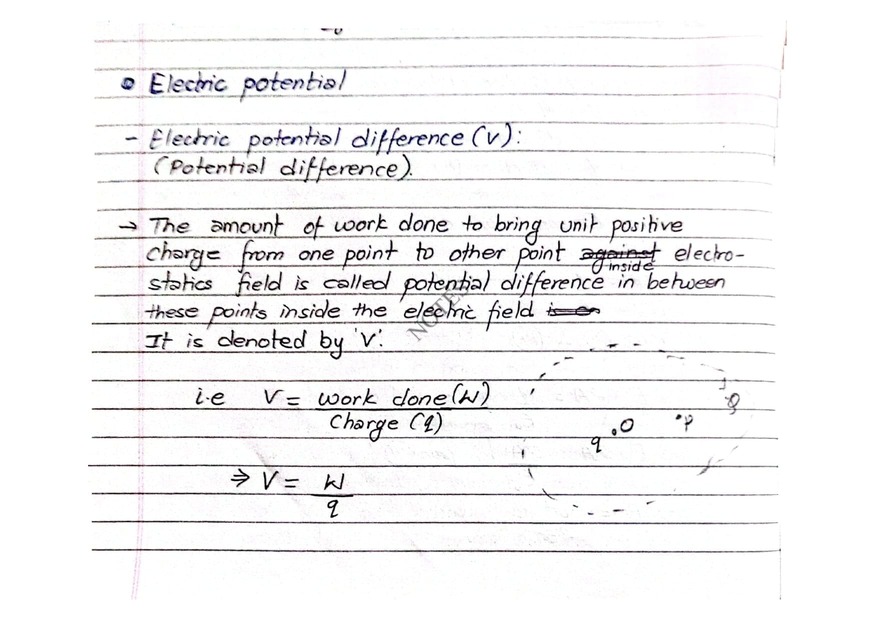 Electric potential
- Electric potential difference (V):
(Potential difference).
→ The amount of work done to bring unit positive
charge from one point to other point against electro-
inside
statics field is called potential difference in between
these points inside the electric field
It is denoted by 'V'.
NOTES
i.e V = work done (W)
Charge (q)
Q
.O
•P
q
⇒ V = W
q